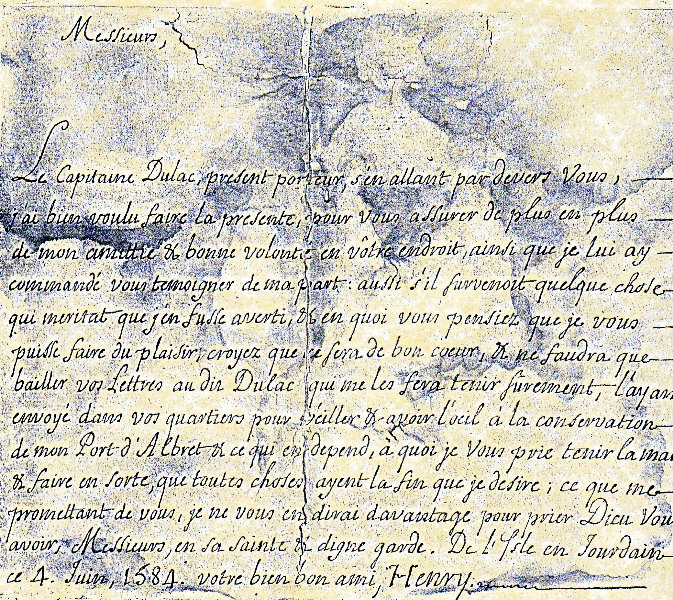 Messieurs,
Le Capitaine Dulac, present porteur, s'en allant par devers Vous,
j'ai bien voulu faire la presente, pour vous assurer de plus en plus
de mon amittié & bonne volonté en vôtre endroit, ainsi que je lui ay
commandé vous temoigner de ma part : aussi s'il survenoit quelque chose
qui meritat que j'en fusse averti, & en quoi vous pensiez que je vous
puisse faire du plaisir, croyez que ce sera de bon coeur, & ne faudra que
bailler vos Lettres au dit Dulac qui me les fera tenir surement, l'ayant
envoyé dans vos quartiers pour veiller & avoir l'oeil à la conservation
de mon Port d'Albret & ce qui en depend, à quoi je Vous prie tenir la main
& faire en sorte, que toutes choses ayent la fin que je desire ; ce que me
promettant de vous, je ne vous en dirai davantage pour prier Dieu Vou
avoir, Messieurs, en sa sainte & digne garde. De l'Isle en Jourdain
ce 4. Juin, 1584. votre bien bon ami, Henry.